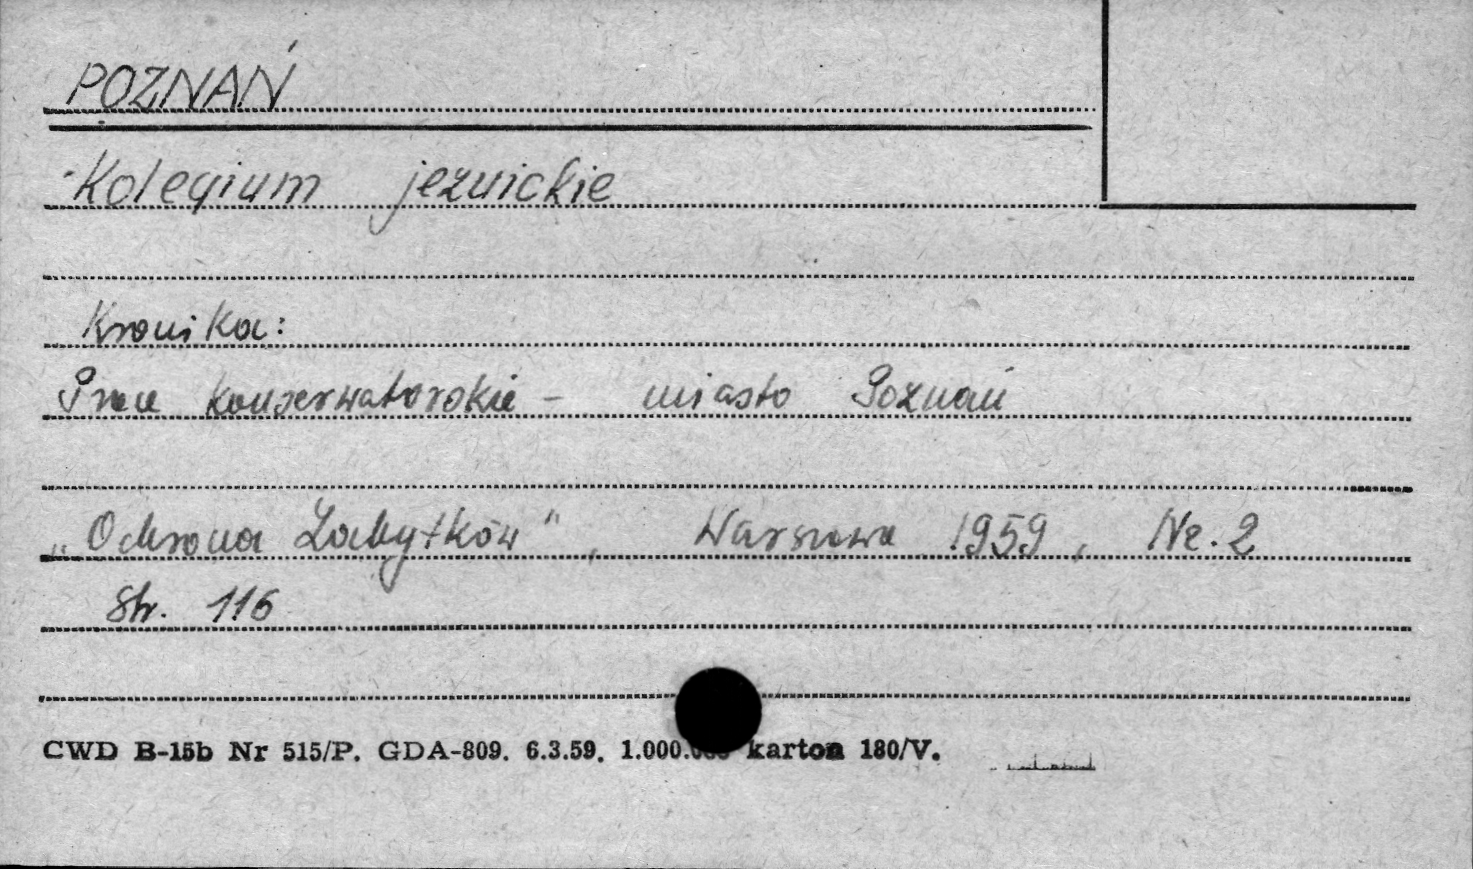 POZNAŃ
Kolegium jezuickie
Kronika:
Prace konserwatorskie - miasto Poznań
„Ochrona Zabytków", Warszawa 1959, Nr. 2
str. 116
CWD B-15b Nr 515/P. GDA-809. 6.3.59. 1.000.000 karton 180/V.